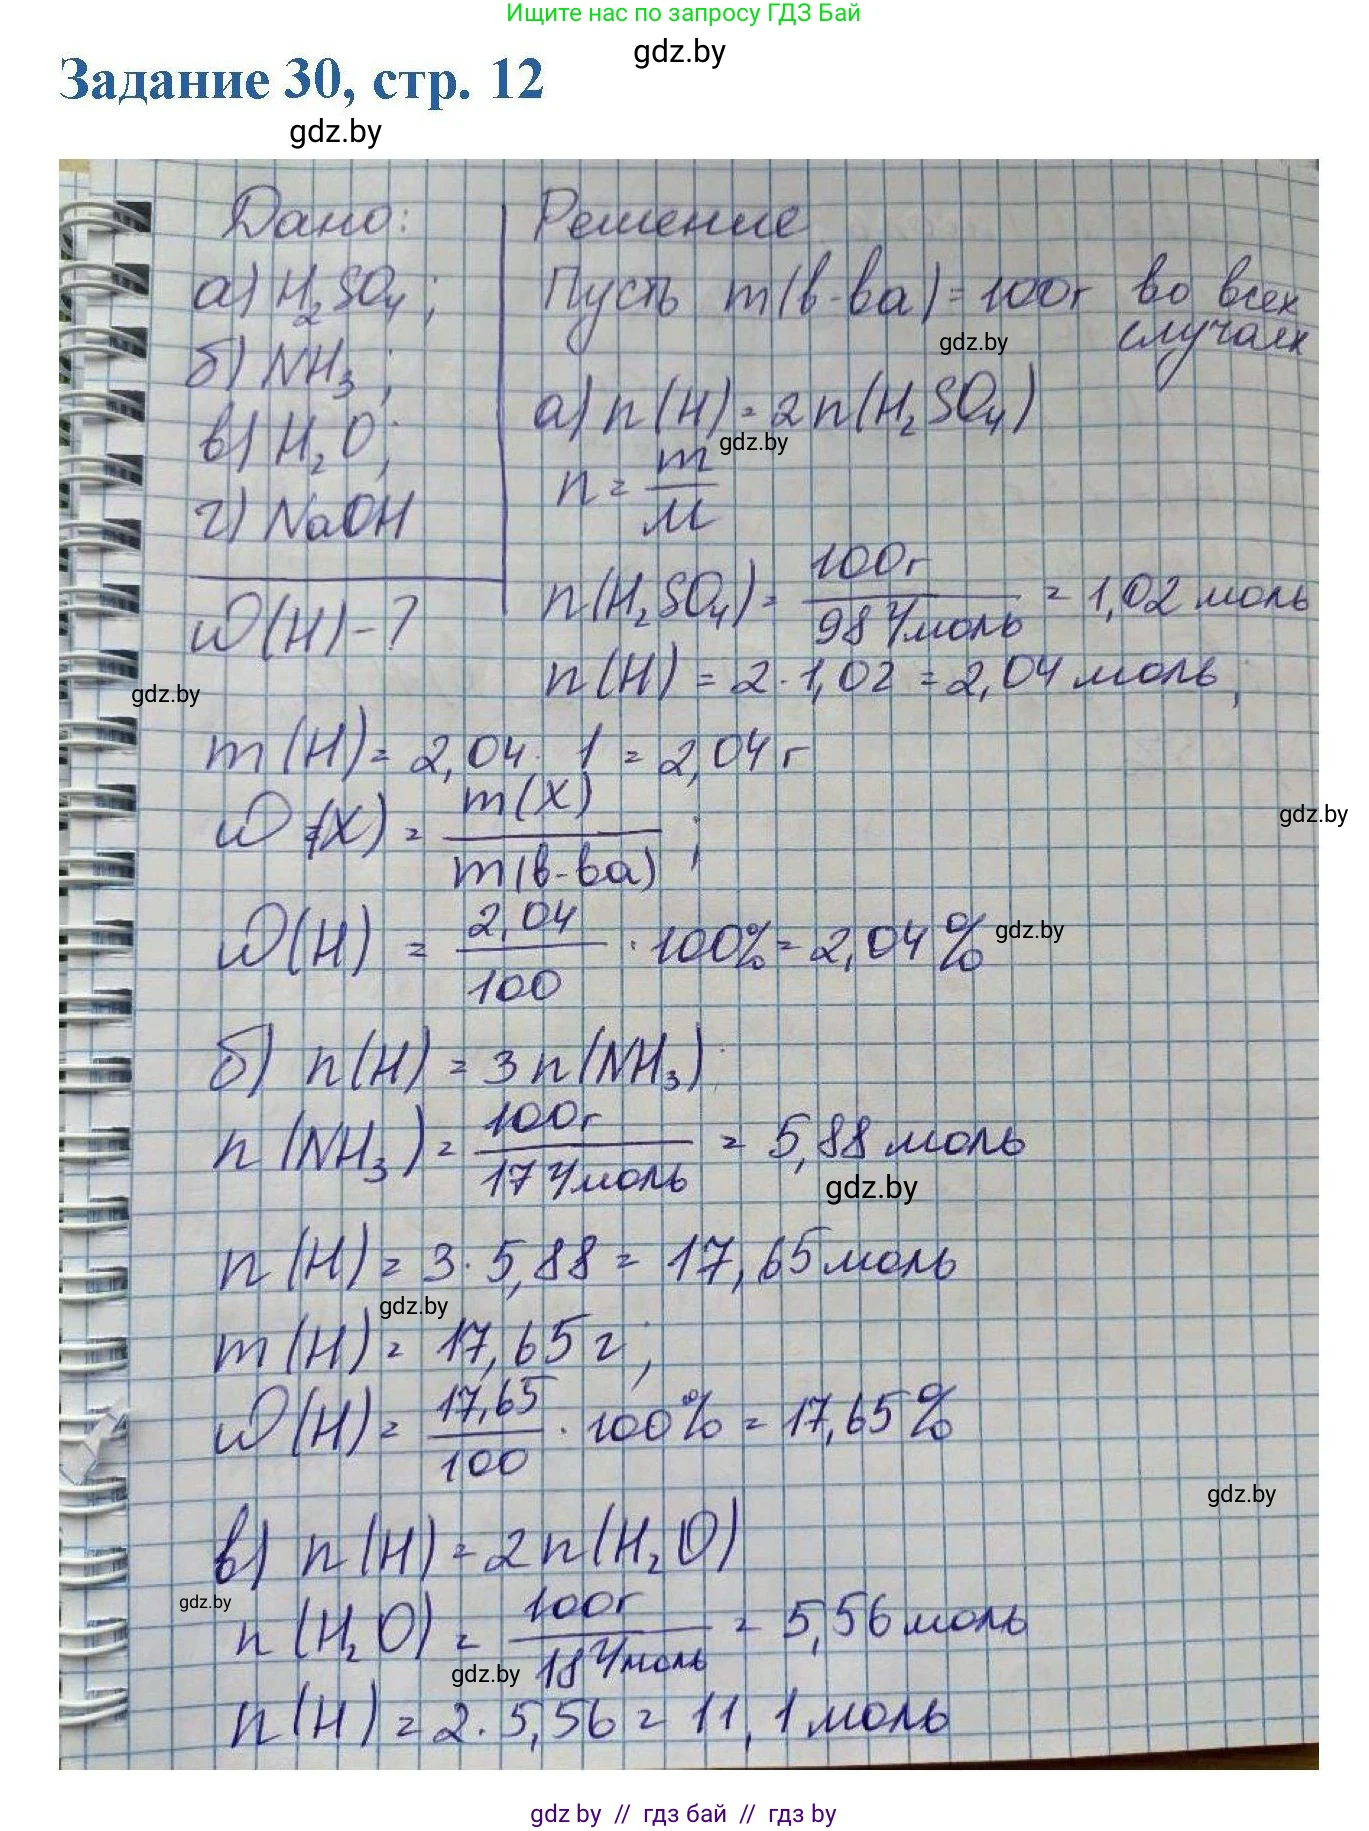 Ищите нас по запросу ГДЗ Бай
gdz.by
Задание 30, стр. 12
gdz.by
Дано:
а) H₂SO₄;
б) NH₃;
в) H₂O;
г) NaOH
W(H)-?
gdz.by
Решение
Пусть m(в-ва)=100г во всех
случаях
gdz.by
а) n(H)=2n(H₂SO₄)
gdz.by
n = m/M
n(H₂SO₄)= 100г/98 г/моль = 1,02 моль
n(H) = 2·1,02 = 2,04 моль;
m(H)= 2,04 · 1 = 2,04 г
gdz.by
W(X) = m(X)/m(в-ва) ;
W(H) = 2,04/100 · 100% = 2,04%
gdz.by
б) n(H) = 3n(NH₃);
n(NH₃)= 100г/17 г/моль = 5,88 моль
gdz.by
n(H) = 3·5,88 = 17,65 моль
gdz.by
m(H)= 17,65 г;
W(H)= 17,65/100 · 100% = 17,65%
gdz.by
в) n(H)=2n(H₂O)
gdz.by
n(H₂O) = 100г/18 г/моль = 5,56 моль
gdz.by
n(H) = 2·5,56 = 11,1 моль
gdz by // гдз бай // гдз by